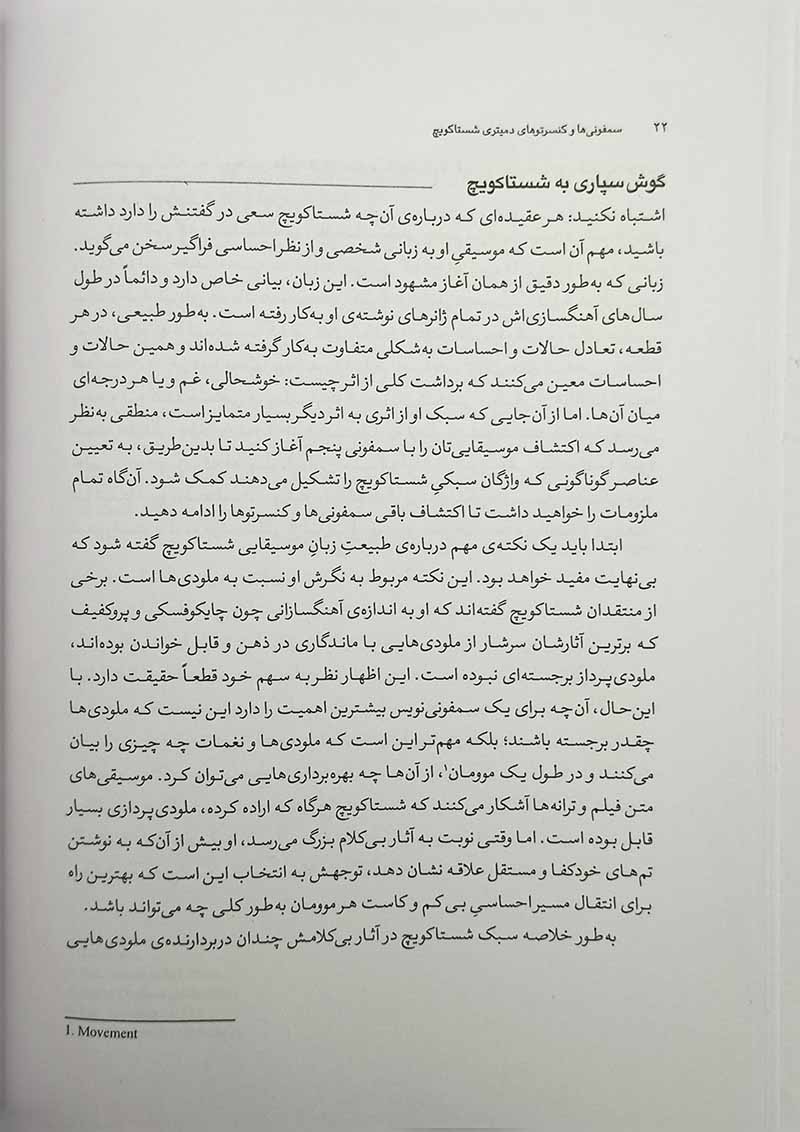 ۲۲ سمفونی‌ها و کنسرتوهای دمیتری شستاکویچ
گوش سپاری به شستاکویچ
اشتباه نکنید: هر عقیده‌ای که درباره‌ی آن‌چه شستاکویچ سعی در گفتنش را دارد داشته
باشید، مهم آن است که موسیقیِ او به زبانی شخصی و از نظر احساسی فراگیر سخن می‌گوید.
زبانی که به‌طور دقیق از همان آغاز مشهود است. این زبان، بیانی خاص دارد و دائماً در طول
سال‌های آهنگسازی‌اش در تمام ژانرهای نوشته‌ی او به‌کار رفته است. به‌طور طبیعی، در هر
قطعه، تعادل حالات و احساسات به‌شکلی متفاوت به‌کار گرفته شده‌اند و همین حالات و
احساسات معین می‌کنند که برداشت کلی از اثر چیست: خوشحالی، غم و یا هر درجه‌ای
میان آن‌ها. اما از آن‌جایی که سبک او از اثری به اثر دیگر بسیار متمایز است، منطقی به‌نظر
می‌رسد که اکتشاف موسیقایی‌تان را با سمفونی پنجم آغاز کنید تا بدین‌طریق، به تعیین
عناصر گوناگونی که واژگان سبکیِ شستاکویچ را تشکیل می‌دهند کمک شود. آن‌گاه تمام
ملزومات را خواهید داشت تا اکتشاف باقی سمفونی‌ها و کنسرتوها را ادامه دهید.
ابتدا باید یک نکته‌ی مهم درباره‌ی طبیعتِ زبانِ موسیقایی شستاکویچ گفته شود که
بی‌نهایت مفید خواهد بود. این نکته مربوط به نگرش او نسبت به ملودی‌ها است. برخی
از منتقدان شستاکویچ گفته‌اند که او به اندازه‌ی آهنگسازانی چون چایکوفسکی و پروکفیف
که برترین آثارشان سرشار از ملودی‌هایی با ماندگاری در ذهن و قابل خواندن بوده‌اند،
ملودی‌پرداز برجسته‌ای نبوده است. این اظهار نظر به سهم خود قطعاً حقیقت دارد. با
این‌حال، آن‌چه برای یک سمفونی‌نویس بیشترین اهمیت را دارد این نیست که ملودی‌ها
چقدر برجسته باشند؛ بلکه مهم‌تر این است که ملودی‌ها و نغمات چه چیزی را بیان
می‌کنند و در طول یک موومان۱، از آن‌ها چه بهره‌برداری‌هایی می‌توان کرد. موسیقی‌های
متن فیلم و ترانه‌ها آشکار می‌کنند که شستاکویچ هرگاه که اراده کرده، ملودی‌پردازی بسیار
قابل بوده است. اما وقتی نوبت به آثار بی‌کلام بزرگ می‌رسد، او بیش از آن‌که به نوشتن
تم‌های خودکفا و مستقل علاقه نشان دهد، توجهش به انتخاب این است که بهترین راه
برای انتقال مسیر احساسیِ بی‌کم و کاست هر موومان به‌طور کلی چه می‌تواند باشد.
به‌طور خلاصه سبک شستاکویچ در آثار بی‌کلامش چندان دربردارنده‌ی ملودی‌هایی
1. Movement